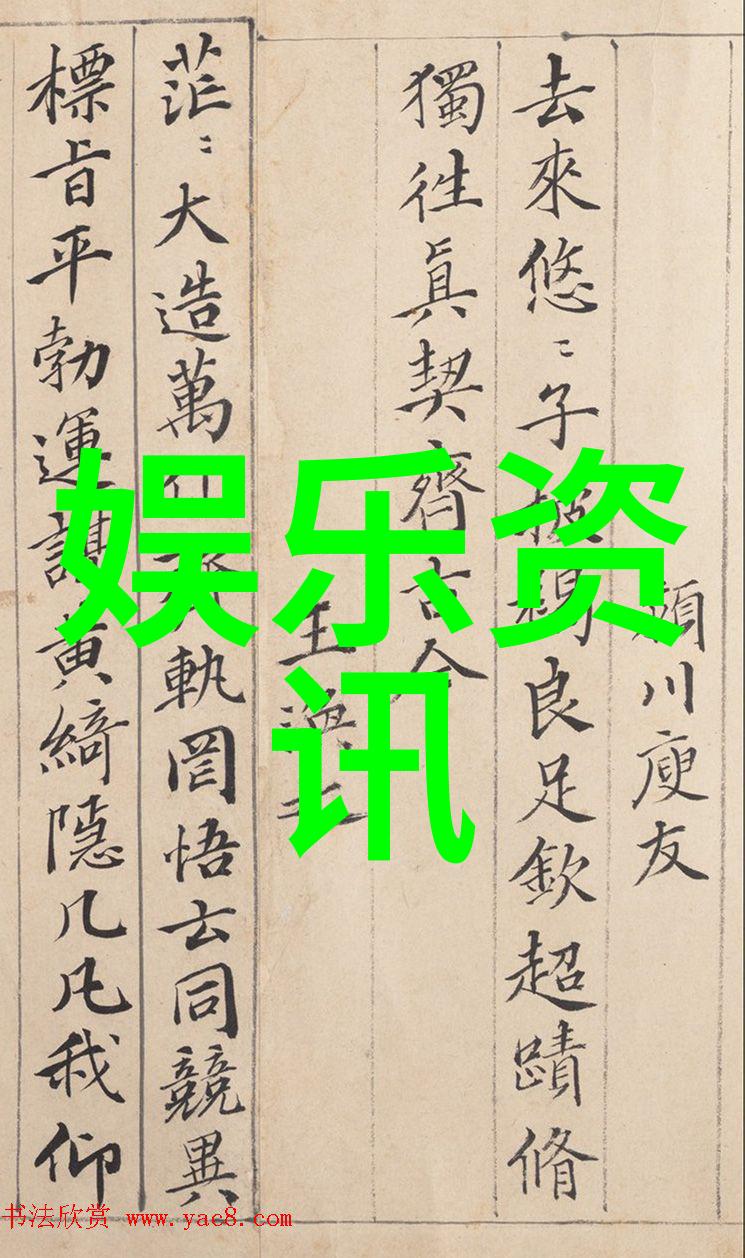 川庾友
去來悠〻子披褐良足欽超蹟脩
獨往眞契齊古今
王
茫〻大造萬軌罔悟玄同競異
標旨平勃運謀黄綺隱几凡我仰
娱乐资
讯
书法欣赏 www.yac8.com